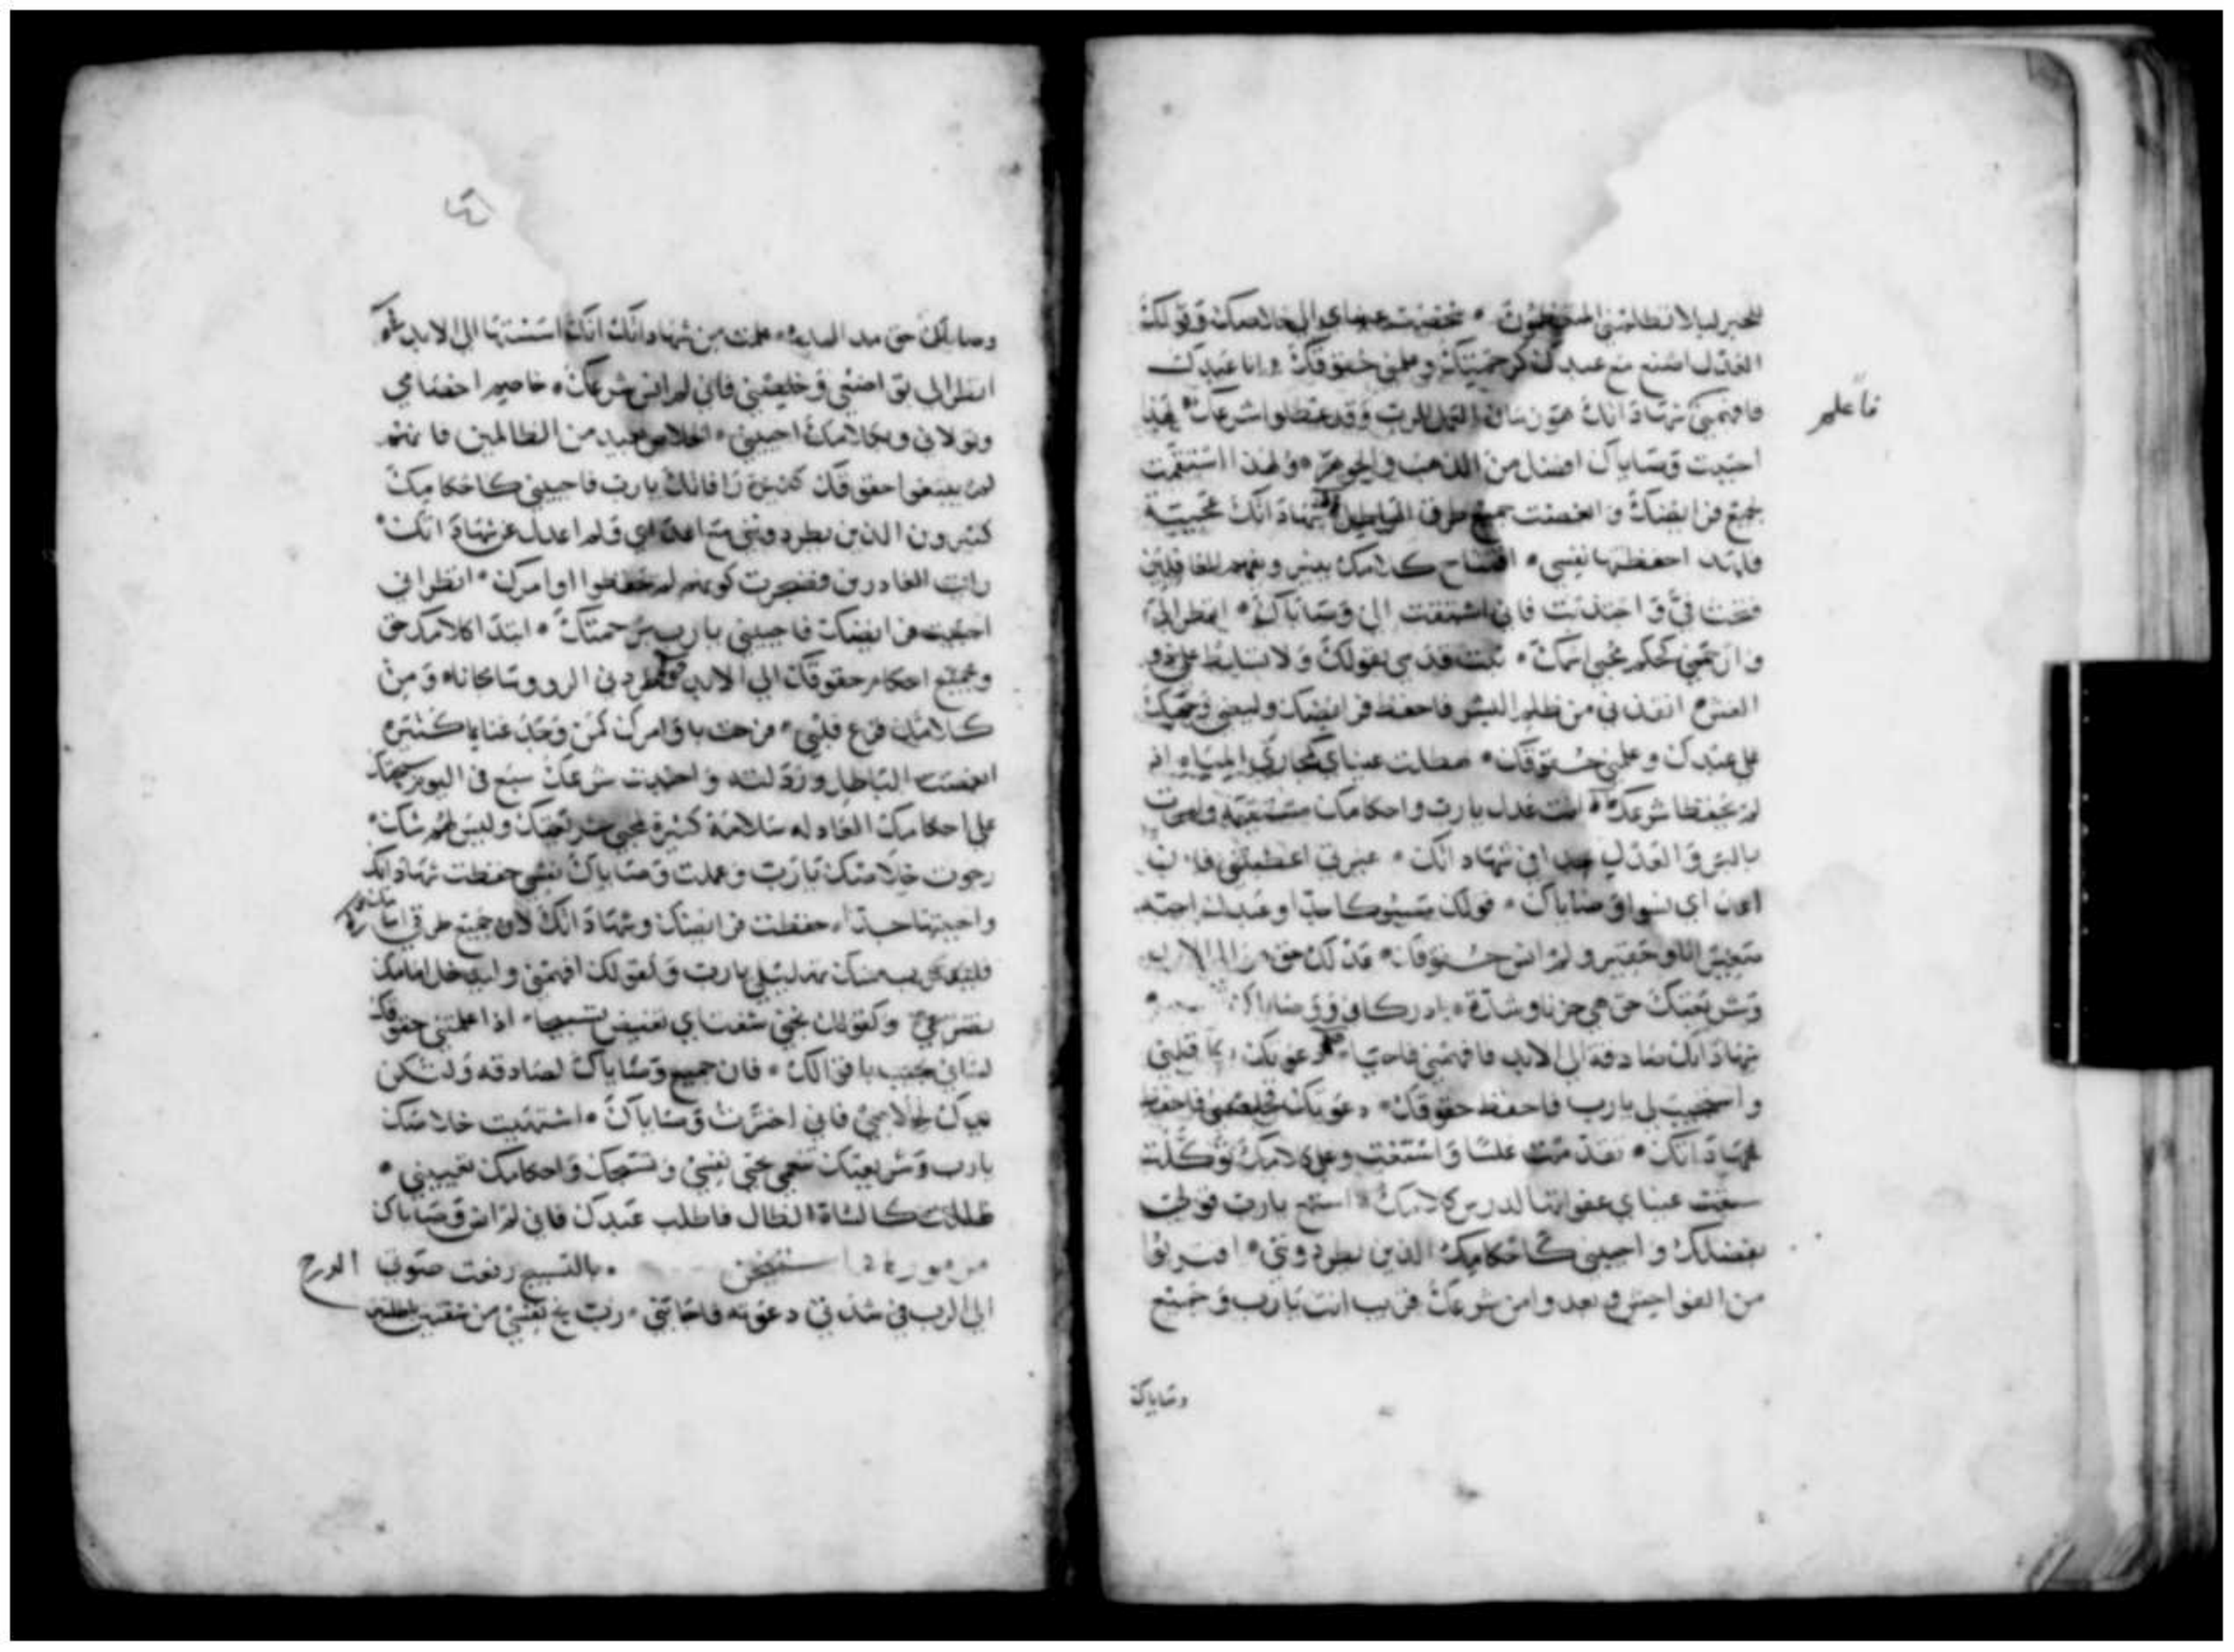 للخير ليلا تظلمني المتعظمون * شخصت عيناي الى خلاصك وقولك
العدل اصنع مع عبدك كرحمتك وعلمني حقوقك وانا عبدك
فافهمني شهاداتك هوذا زمان العمل للرب وقد عطلوا شرعك لهذا
فاعلم
احببت وصاياك افضل من الذهب والجوهر * ولهذا استقمت
بجميع فرايضك وابغضت جميع طرق الاباطيل شهاداتك عجيبة
فلهذا حفظتها نفسي * افتتاح كلامك ينير ويفهم للغافلين
فتحت في واجتذبت فاني اشتقت الى وصاياك * انظر الي
وارحمني كحكم محبي اسمك * ثبت قدمي بقولك ولا تسلط علي ذوو
الغش انقذني من ظلم البشر فاحفظ فرايضك وليضي وجهك
على عبدك وعلمني حقوقك * هطلت عيناي كمجاري المياه اذ
لم يحفظا شرعك * انت عدل يا رب واحكامك مستقيمة واوصيت
بالبر والعدل جدا في شهاداتك * غيرتي اعظمتني فان
اعداي نسوا وصاياك * قولك مسبوكا جدا وعبدك احبه
صغير انا وحقير ولم انس حقوقك * عدلك حق الى الابد
وشريعتك حق هي حزنا وشدة ادركاني ووصاياك
شهاداتك صادقة الى الابد فافهمني فاحيا * دعوتك بكل قلبي
واستجيب لي يا رب فاحفظ حقوقك * دعوتك فخلصني فاحفظ
شهاداتك * تقدمت غلسا واستغثت وعلى كلامك توكلت
سبقت عيناي عفوانها لدرس كلامك * استمع يا رب قولي
بفضلك واحييني كاحكامك الذين يطردوني * اقتربوا
من الفواحش وبعدوا من شرعك قريب انت يا رب وجميع
وصاياك
وصاياك حق منذ البدء علمت من شهاداتك انك اسستها الى الابد
انظر الى تواضعي وخلصني فاني لم انس شرعك * خاصم اخصامي
وتولاني وبكلامك احييني * الخلاص بعيد من الظالمين فانهم
لم يبتغوا حقوقك كثيرة رافاتك يا رب فاحييني كاحكامك
كثيرون الذين يطردونني مع اعداي ولم اعدل عن شهاداتك *
رايت الغادرين فضجرت كونهم لم يحفظوا اوامرك * انظر اني
احببت فرايضك فاحييني يا رب برحمتك * ابتدا كلامك حق
وجميع احكام حقوقك الى الابد * طردني الروسا مجانا ومن
كلامك فزع قلبي * فرحت باوامرك كمن وجد غنايما كثيرة
ابغضت الباطل ورذلته واحببت شرعك سبع في اليوم سبحتك
على احكامك العادله سلامة كثيرة لمحبي شريعتك وليس لهم شك *
رجوت خلاصك يا رب وعملت وصاياك نفسي حفظت شهاداتك
واحببتها جدا * حفظت فرايضك وشهاداتك لان جميع طرقي امامك
فليقترب منك تهليلي يا رب وكقولك افهمني وليدخل امامك
تضرعي وكقولك نجني شفتاي تفيض تسبيحا * اذا علمتني حقوقك
لساني يجيب باقوالك * فان جميع وصاياك لصادقه ولتكن
يدك لخلاصي فاني اخترت وصاياك * اشتهيت خلاصك
يا رب وشريعتك هي تحيي نفسي وتسبحك واحكامك تعينني *
ضللت كالشاة الضال فاطلب عبدك فاني لم انس وصاياك
بالتسبيح رفعت صوت الدرج
الى الرب في شدتي دعوته فاجابني * رب نج نفسي من شفتين